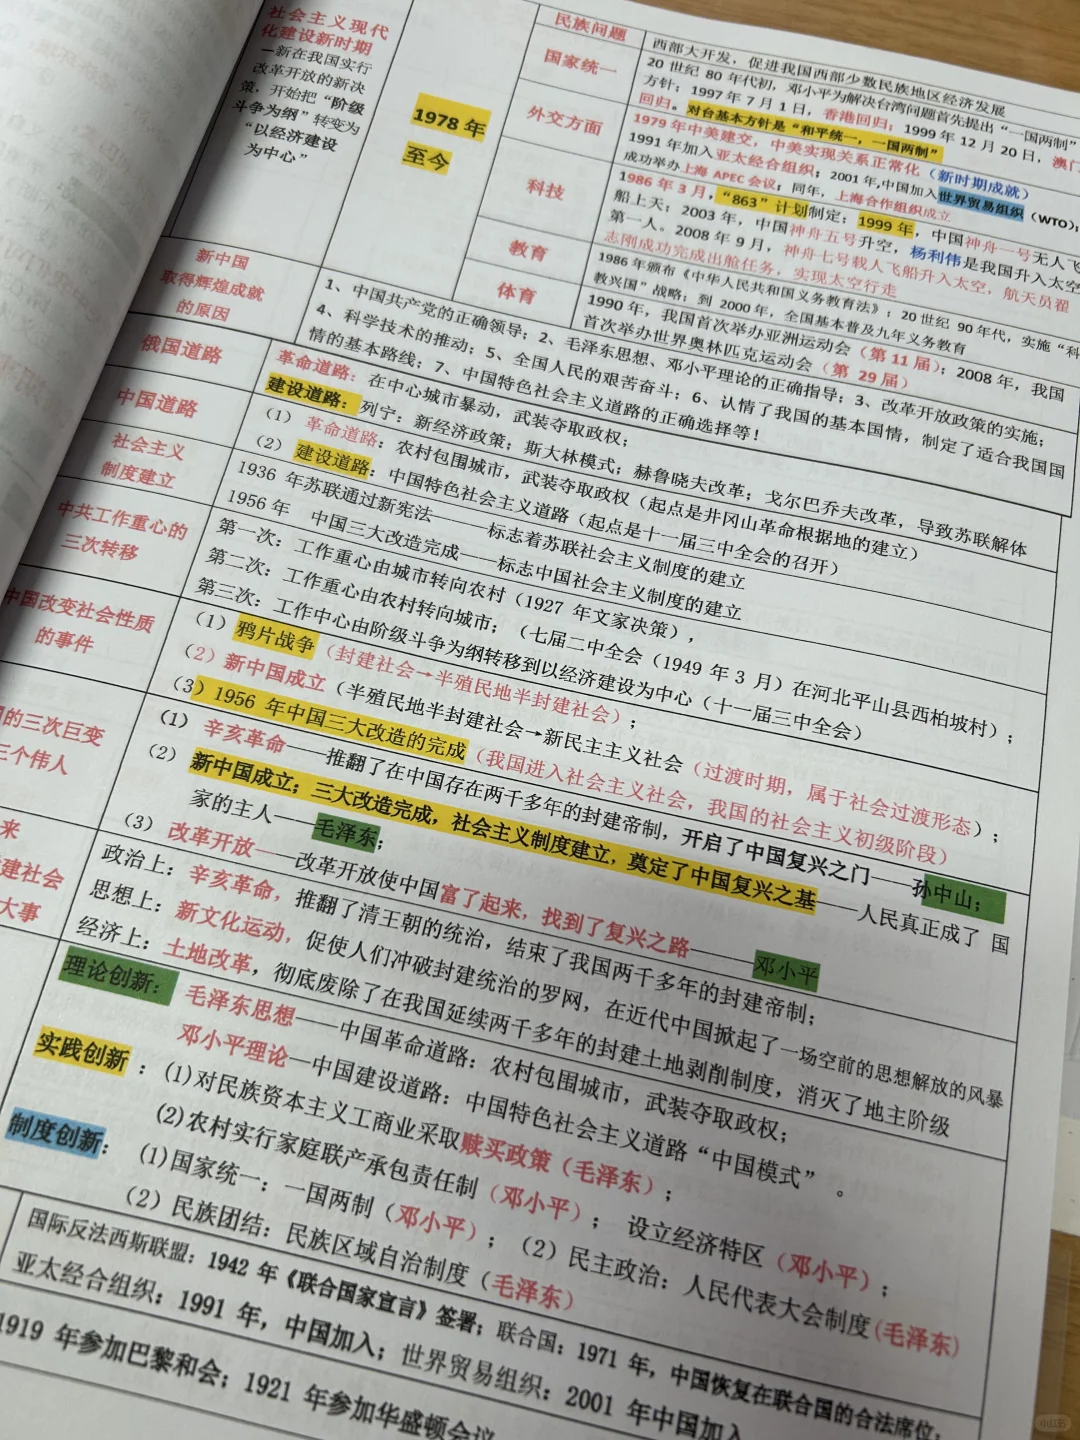 社会主义现代
化建设新时期
—新在我国实行
改革开放的新决
策，开始把“阶级
斗争为纲”转变为
“以经济建设
为中心”
1978 年
至今
民族问题
西部大开发，促进我国西部少数民族地区经济发展
国家统一
20 世纪 80 年代初，邓小平为解决台湾问题首先提出“一国两制”
方针；1997 年 7 月 1 日，香港回归；1999 年 12 月 20 日，澳门
回归。对台基本方针是“和平统一，一国两制”
外交方面
1979 年中美建交，中美实现关系正常化（新时期成就）
1991 年加入亚太经合组织；2001 年,中国加入世界贸易组织（WTO）；
成功举办上海 APEC 会议；同年，上海合作组织成立
科技
1986 年 3 月，“863”计划制定；1999 年，中国神舟一号无人飞
船上天；2003 年，中国神舟五号升空，杨利伟是我国升入太空
第一人。2008 年 9 月，神舟七号载人飞船升入太空，航天员翟
志刚成功完成出舱任务，实现太空行走
教育
1986 年颁布《中华人民共和国义务教育法》；20 世纪 90 年代，实施“科
教兴国”战略；到 2000 年，全国基本普及九年义务教育
体育
1990 年，我国首次举办亚洲运动会（第 11 届）；2008 年，我国
首次举办世界奥林匹克运动会（第 29 届）
新中国
取得辉煌成就
的原因
1、中国共产党的正确领导；2、毛泽东思想、邓小平理论的正确指导；3、改革开放政策的实施；
4、科学技术的推动；5、全国人民的艰苦奋斗；6、认情了我国的基本国情，制定了适合我国国
情的基本路线；7、中国特色社会主义道路的正确选择等！
俄国道路
革命道路：在中心城市暴动，武装夺取政权；
建设道路：列宁：新经济政策；斯大林模式；赫鲁晓夫改革；戈尔巴乔夫改革，导致苏联解体
中国道路
（1）革命道路：农村包围城市，武装夺取政权（起点是井冈山革命根据地的建立）
（2）建设道路：中国特色社会主义道路（起点是十一届三中全会的召开）
社会主义
制度建立
1936 年苏联通过新宪法——标志着苏联社会主义制度的建立
1956 年 中国三大改造完成——标志中国社会主义制度的建立
中共工作重心的
三次转移
第一次：工作重心由城市转向农村（1927 年文家决策），
第二次：工作重心由农村转向城市；（七届二中全会（1949 年 3 月）在河北平山县西柏坡村）；
第三次：工作中心由阶级斗争为纲转移到以经济建设为中心（十一届三中全会）
中国改变社会性质
的事件
（1）鸦片战争（封建社会→半殖民地半封建社会）；
（2）新中国成立（半殖民地半封建社会→新民主主义社会（过渡时期，属于社会过渡形态）；
（3）1956 年中国三大改造的完成（我国进入社会主义社会，我国的社会主义初级阶段）
的三次巨变
三个伟人
（1）辛亥革命——推翻了在中国存在两千多年的封建帝制，开启了中国复兴之门——孙中山；
（2）新中国成立；三大改造完成，社会主义制度建立，奠定了中国复兴之基——人民真正成了 国
家的主人——毛泽东；
（3）改革开放——改革开放使中国富了起来，找到了复兴之路——邓小平
来
建社会
大事
政治上：辛亥革命，推翻了清王朝的统治，结束了我国两千多年的封建帝制；
思想上：新文化运动，促使人们冲破封建统治的罗网，在近代中国掀起了一场空前的思想解放的风暴
经济上：土地改革，彻底废除了在我国延续两千多年的封建土地剥削制度，消灭了地主阶级
理论创新：毛泽东思想——中国革命道路：农村包围城市，武装夺取政权；
邓小平理论—中国建设道路：中国特色社会主义道路“中国模式”。
实践创新：(1)对民族资本主义工商业采取赎买政策（毛泽东）；
(2)农村实行家庭联产承包责任制（邓小平）； 设立经济特区（邓小平）；
制度创新：(1)国家统一：一国两制（邓小平）；（2）民主政治：人民代表大会制度(毛泽东)
（2）民族团结：民族区域自治制度（毛泽东）
国际反法西斯联盟：1942 年《联合国家宣言》签署；联合国：1971 年，中国恢复在联合国的合法席位；
亚太经合组织：1991 年，中国加入；世界贸易组织：2001 年中国加入
1919 年参加巴黎和会；1921 年参加华盛顿会议
小红书